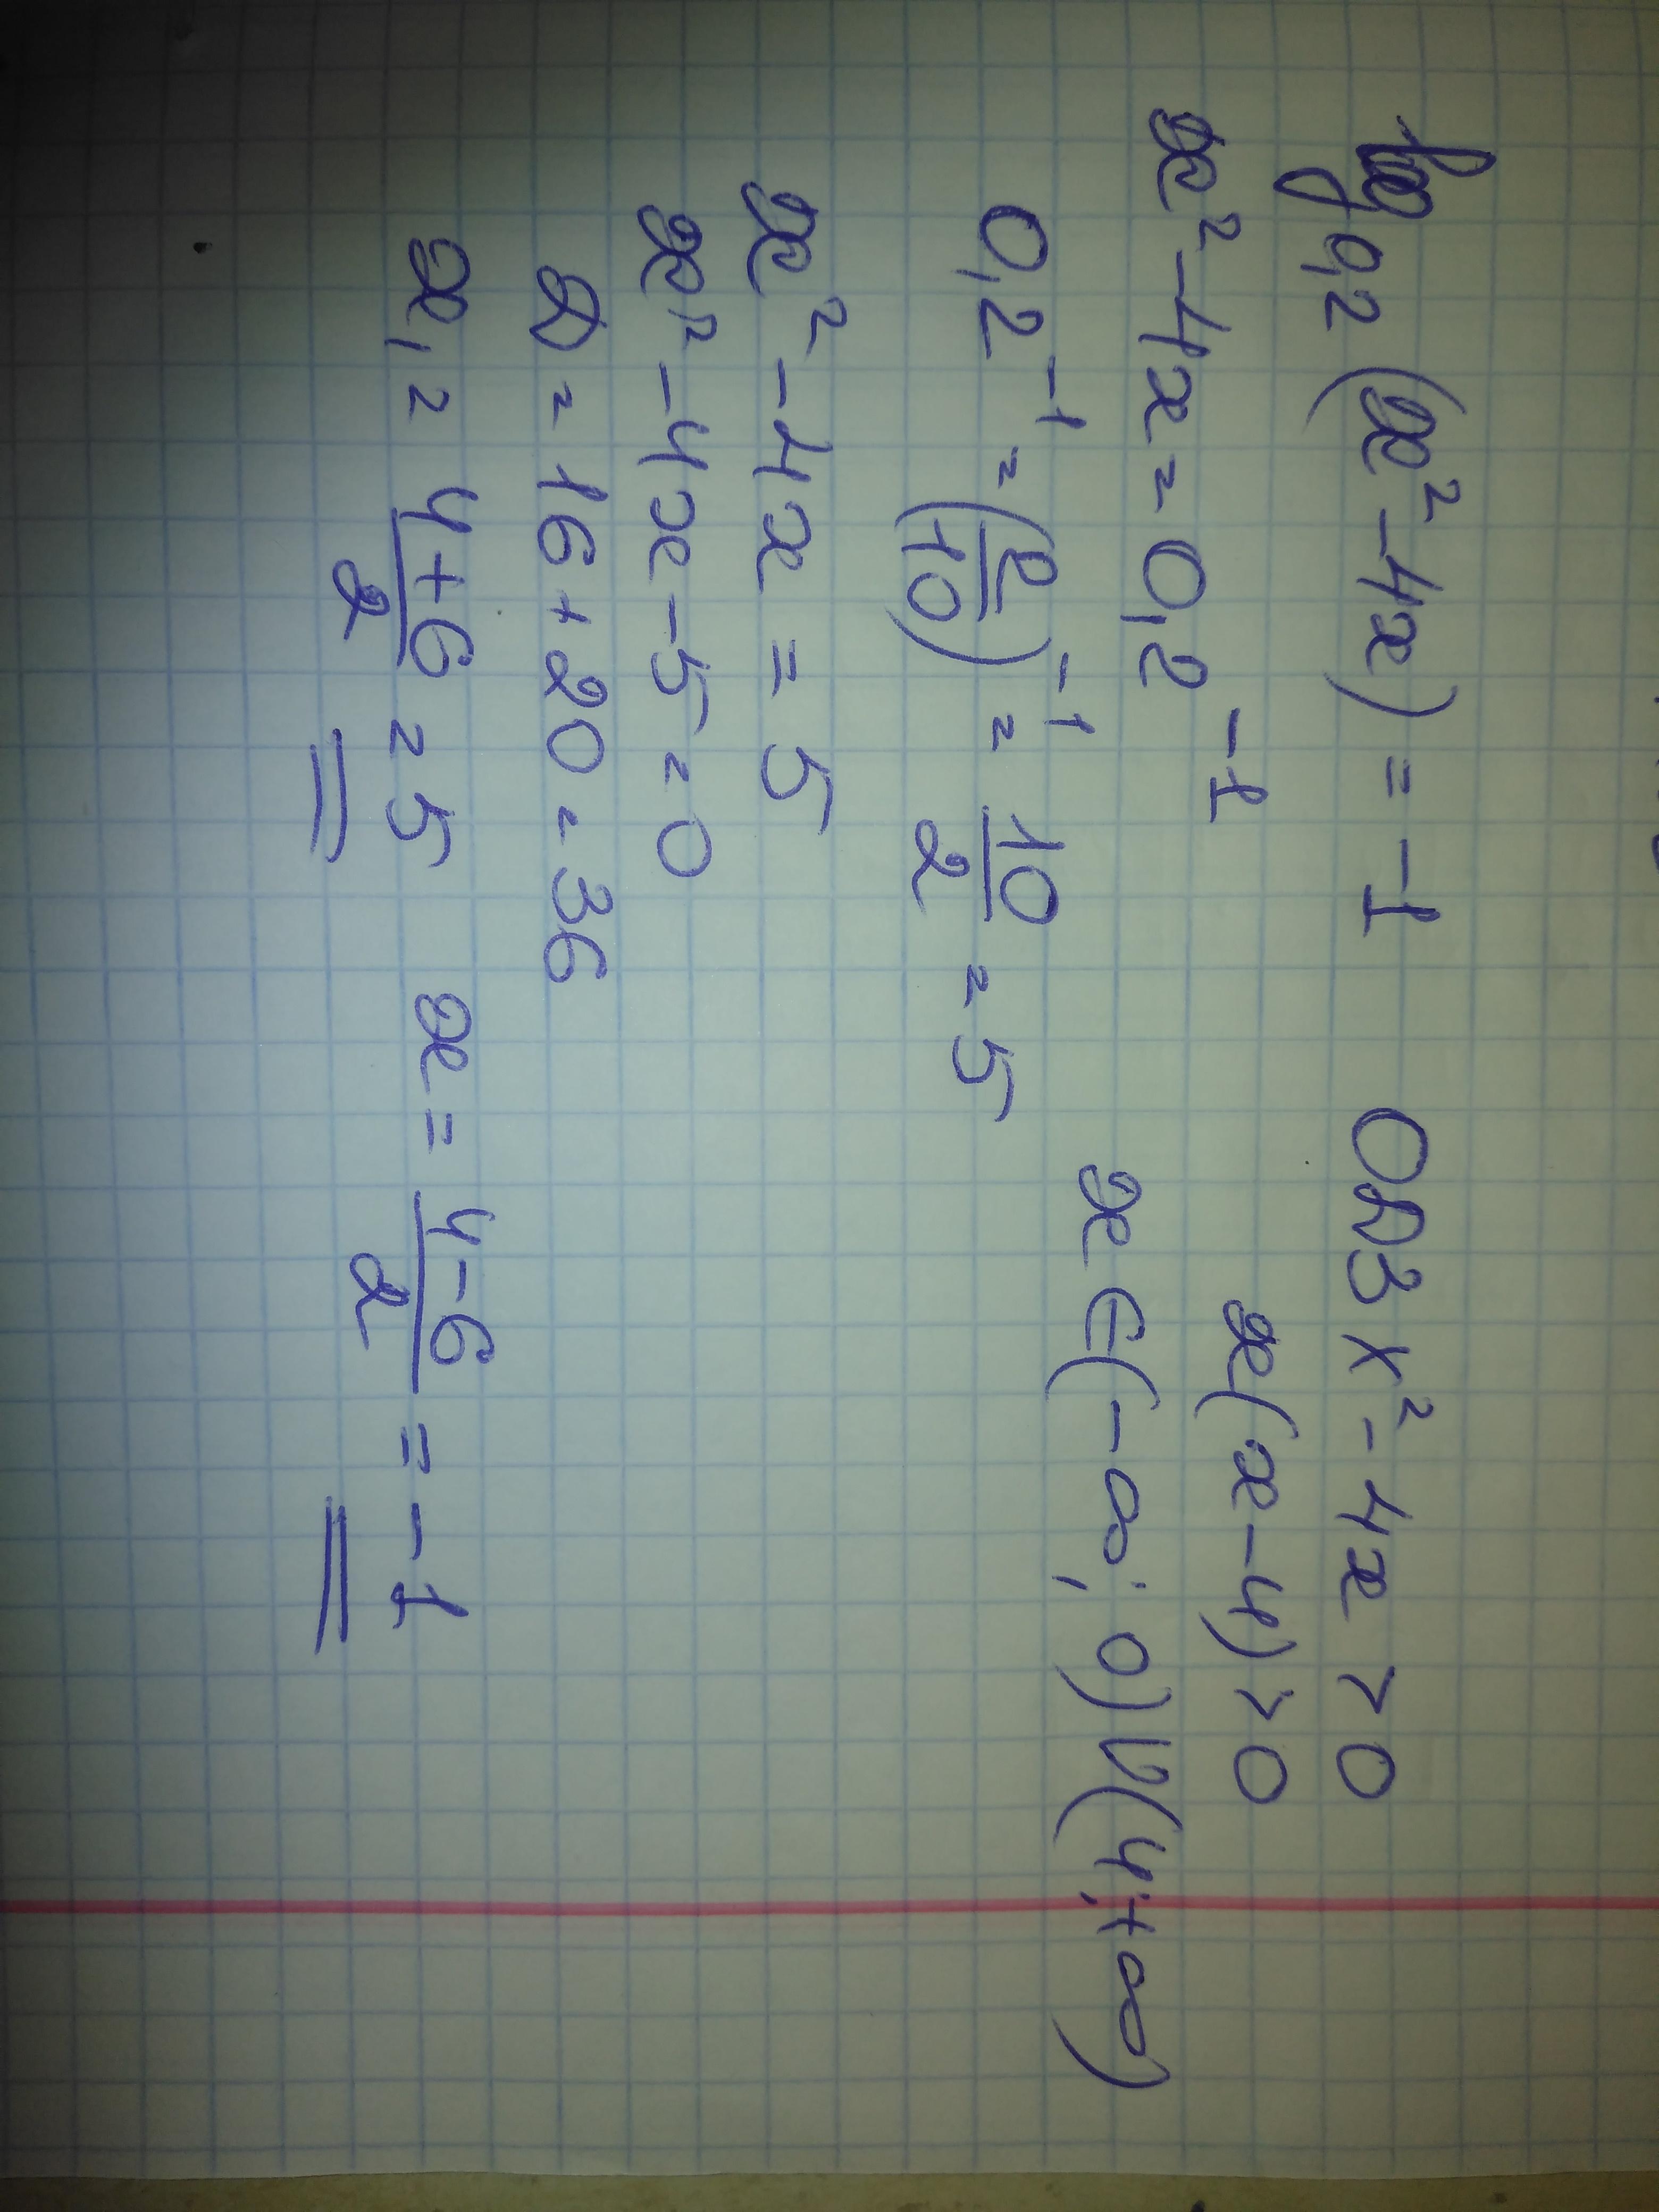 log0,2 (x²-4x) = -1 ОДЗ x²-4x > 0
x²-4x = 0,2⁻¹ x(x-4) > 0
0,2⁻¹ = (2/10)⁻¹ = 10/2 = 5 x ∈ (-∞; 0) U (4; +∞)
x²-4x = 5
x²-4x-5=0
D = 16+20=36
x₁ = (4+6)/2 = 5 x = (4-6)/2 = -1